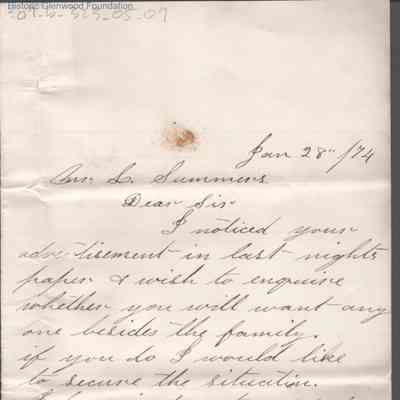 Historic Glenwood Foundation
Jan 28th /74
Mr. L. Summers
Dear Sir
I noticed your
advertisement in last nights
paper & wish to enquire
whether you will want any
one besides the family.
if you do I would like
to secure the situation.